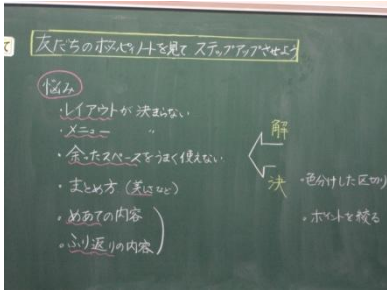 て
友だちのホップノートを見て ステップアップさせよう
悩み
・レイアウトが決まらない
・メニュー 〃
・余ったスペースをうまく使えない
・まとめ方(美しさなど)
・めあての内容
・ふり返りの内容
解決
・色分けした区切り
・ポイントを絞る